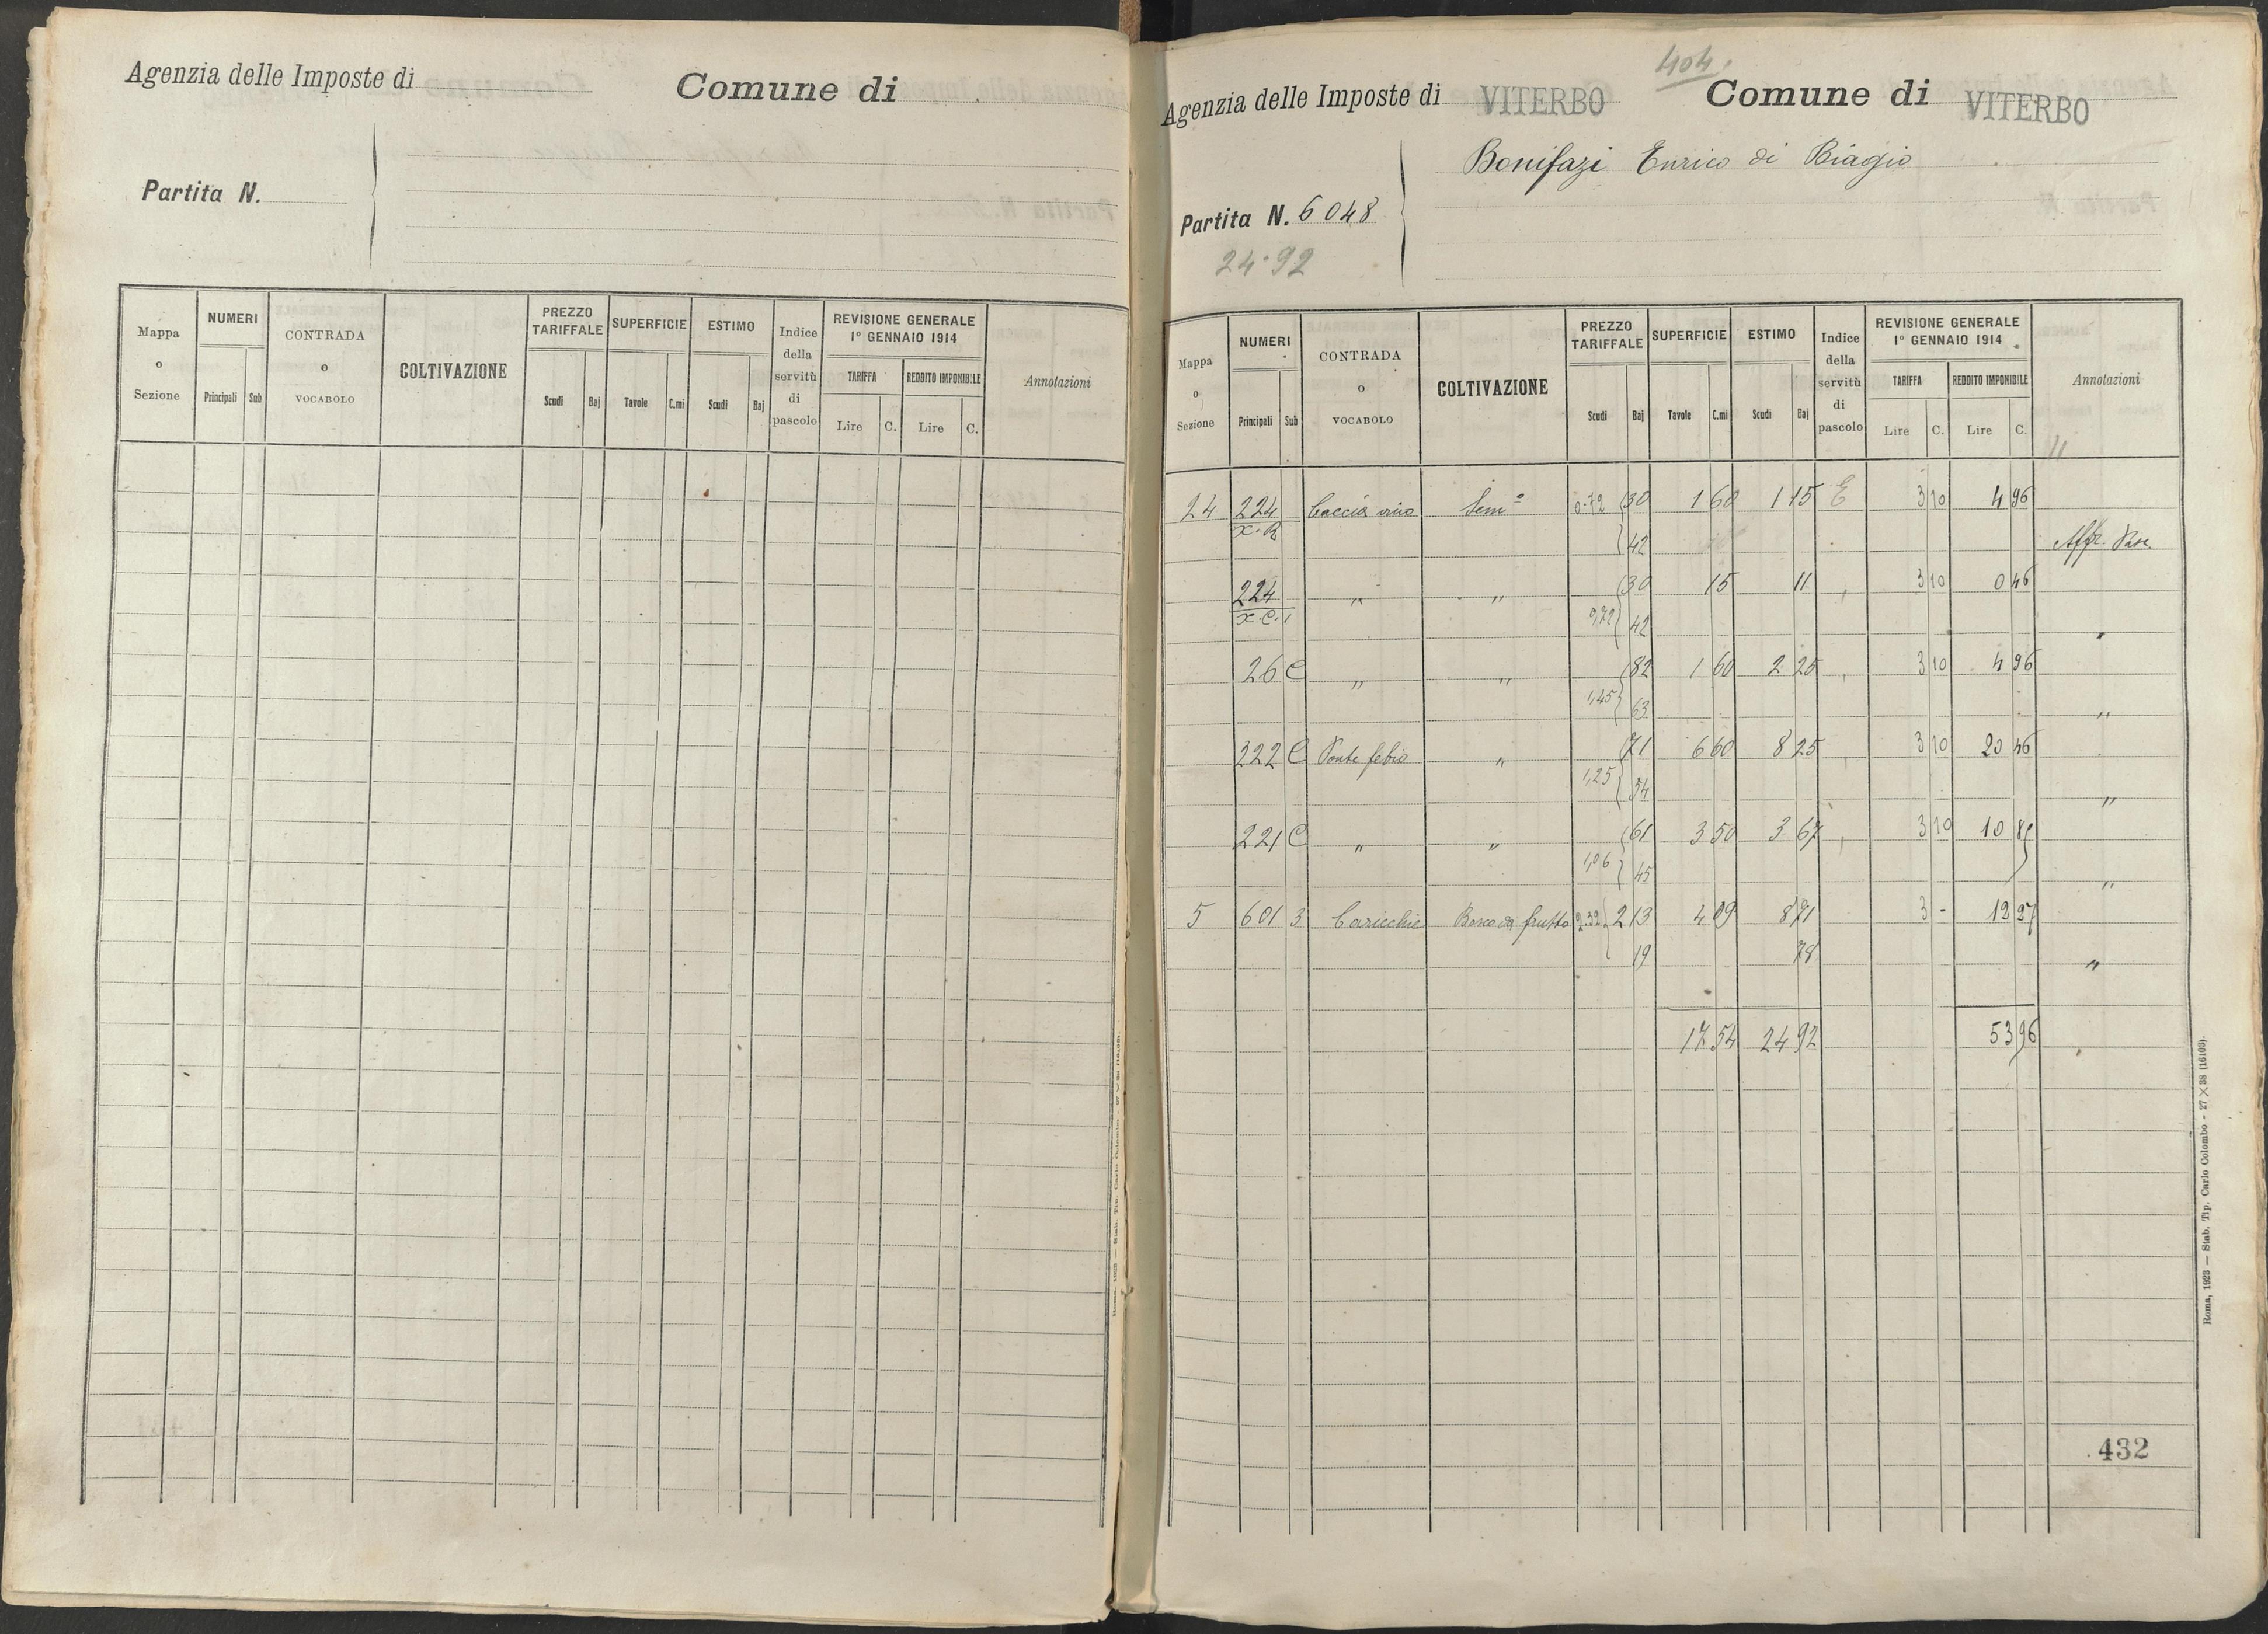 Agenzia delle Imposte di
Comune di
Partita N.
Mappa o Sezione
NUMERI
Principali
Sub
CONTRADA o VOCABOLO
COLTIVAZIONE
PREZZO TARIFFALE
Scudi
Baj
SUPERFICIE
Tavole
C.mi
ESTIMO
Scudi
Baj
Indice della servitù di pascolo
REVISIONE GENERALE
1° GENNAIO 1914
TARIFFA
REDDITO IMPONIBILE
Lire
C.
Lire
C.
Annotazioni
404.
Agenzia delle Imposte di VITERBO
Comune di VITERBO
Bonifazi Enrico di Biagio
Partita N. 6048
24.92
Mappa o Sezione
NUMERI
Principali
Sub
CONTRADA o VOCABOLO
COLTIVAZIONE
PREZZO TARIFFALE
Scudi
Baj
SUPERFICIE
Tavole
C.mi
ESTIMO
Scudi
Baj
Indice della servitù di pascolo
REVISIONE GENERALE
1° GENNAIO 1914
TARIFFA
REDDITO IMPONIBILE
Lire
C.
Lire
C.
Annotazioni
24 224 Caccia Semo 0.72 30 1 60 1 15 E 3 10 4 96
42 Affr. Pasc.
224 " " 30 15 11 3 10 0 46
0,72 42 "
26 C " " 82 1 60 2 25 3 10 4 96
1,45 63 "
222 C Ponte febio " 71 6 60 8 25 3 10 20 46
1,25 54 "
221 C " " 61 3 50 3 67 3 10 10 85
1,06 45 "
5 601 3 Caricchie Bosco da frutto 2.32 2 13 4 09 8 71 3 - 12 27
19 78 "
17 54 24 92 53 96
432
Roma, 1923 — Stab. Tip. Carlo Colombo - 27 × 38 (16103).